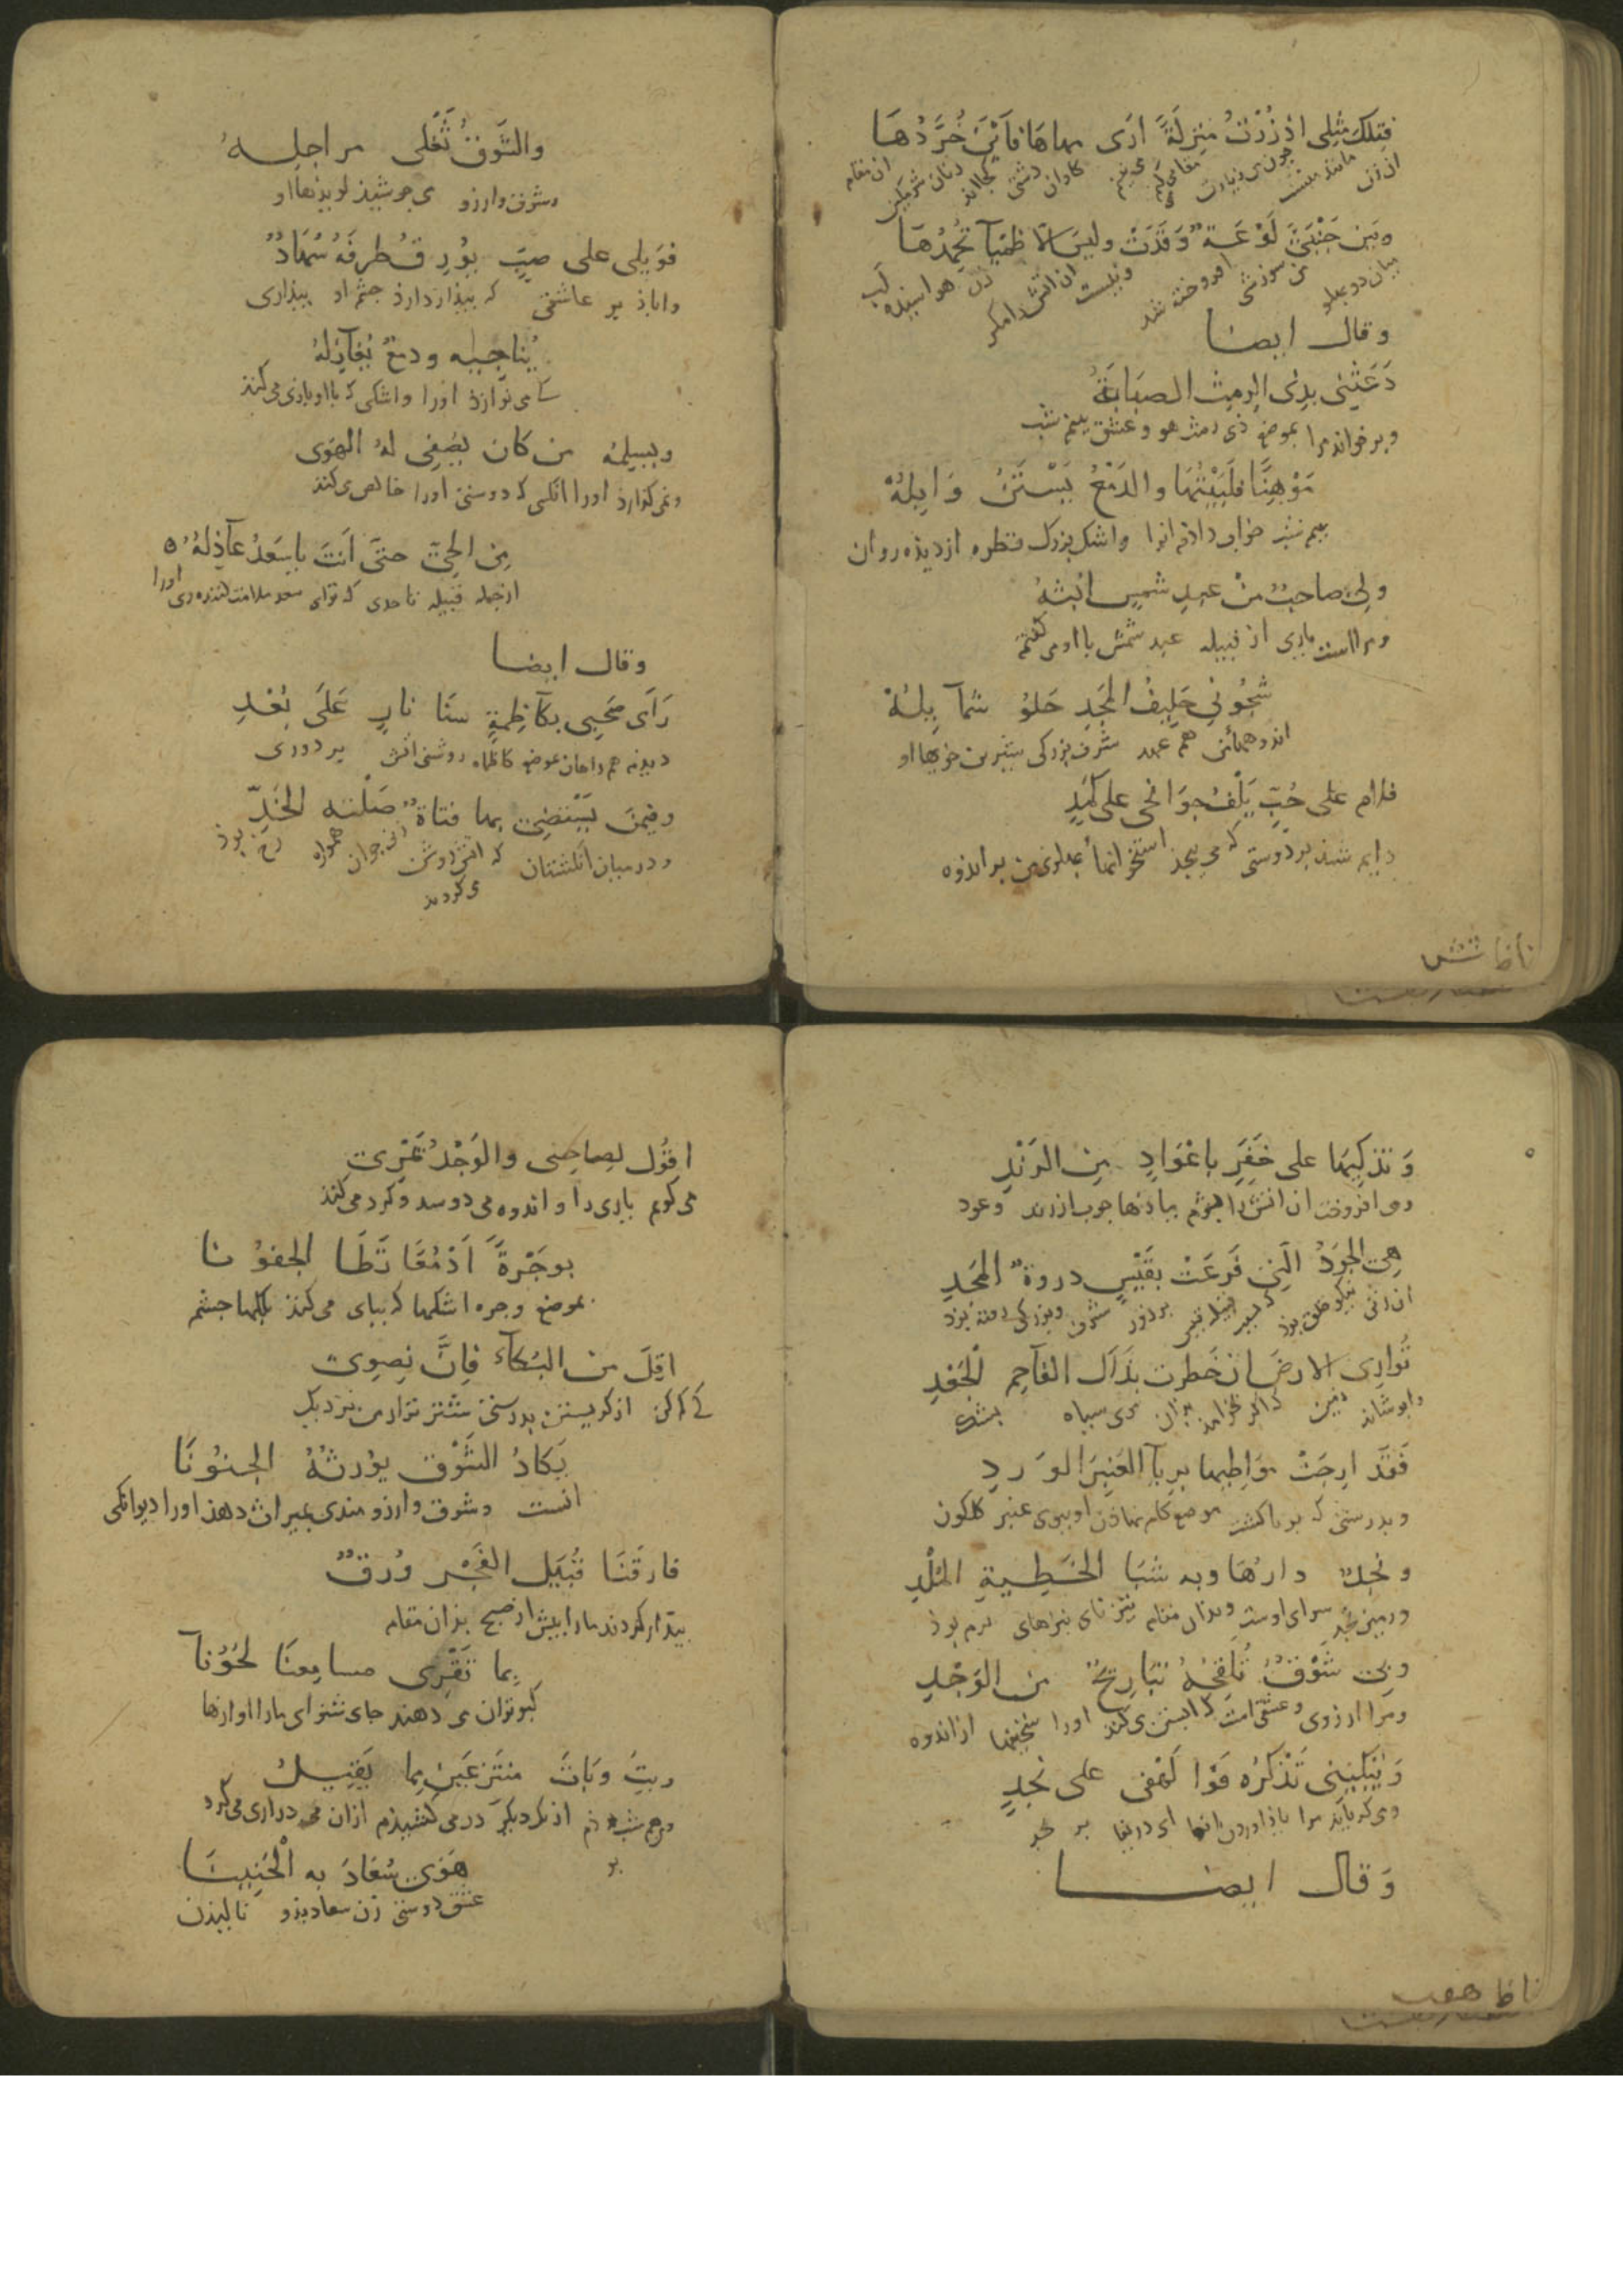 فتلك مثلي اذ زرت منزلة ارى مهاها فاين خردها
ان زن مانند منست چون می زیارت مقامی کنم می بینم کاوان دشتی کجااند زنان شرمکین ان مقام
وبين جنبي لوعة وقدت وليس الا ظمياء تخمدها
میان دو پهلو من سوزشی افروخته شد ونیست ان اتش را مکر زن لب
وقال ايضا
دعتني بذي الرمث الصبابة
وبر خواند مرا بموضع ذی رمث هو وعشق نیم شب
موهنا فلبيتها والدمع يستن وابله
نیم شب جواب دادم انرا واشک بزرک قطره از دیذه روان
ولي صاحب من عبد شمس ابثه
ومراست یاری از قبیله عبد شمش با او می کفتم
شجوني حليف المجد حلو شمايله
اندوههائی هم عهد شرف بزرکی شیرین خویها او
فلام على حب يلف جوانحي على كمد
دایم شد بر دوستی که می پیچد استخوانها پهلوی من بر اندوه
ناظا شش
والشوق تغلى مراجله
وشوق وارزو می جوشیذ لویذها او
فويلى على صب يورق طرفه سهاد
واباذ بر عاشقی که بیذار دارذ چشم او بیذاری
يناجيه ودمع يغازله
که می نوازذ اورا واشکی که با او بازی می کنذ
ويسلمه من كان يصفى له الهوى
ونمی کذارد اورا انکس که دوستی اورا خالص می کند
من الحي حتى انت يا سعد عاذله
از جمله قبیله تا حدی که تو ای سعد ملامت کننده وی اورا
وقال ايضا
راى صحبي بكاظمة سنا نار على بعد
دیدند همراهان بموضع کاظمه روشنی اتش بر دوری
وفيمن يستضئ بها فتاة صلته الخد
ودر میان انکشتان که اتش روشن می کردند زن جوان همواره رخ بوذ
وتذكيها على خفر باعواد من الرند
ومی افروخت ان اتش را بشرم بباذنها چوب از رند وعود
هي الجود التي فرعت بقيس دروة المجد
ان زنی نیکو خلق بوذ که بسبب قبیله قیس بر ذرو شرف وبزرکی رفته بوذ
توارى الارض ان خطرت بذاك الفاحم الجعد
وابوشاند زمین که اکر خرامد بذان موی سیاه بشک
فقد ارجت مواطيها بريا العنبر الورد
وبدرستی که بویا کشت موضع کام نهاذن او ببوی عنبر کلکون
ونجد دارها وبه شبا الخطية الملد
وزمین نجد سرای اوست وبدان مقام تیز نای نیزهای نرم بوذ
وبي شوق تلقحه تباريح من الوجد
ومرا ارزوی وعشقی است که ابستن می کند اورا سختیها از اندوه
ويبكيني تذكره فوا لهفى على نجد
ومی کریاند مرا یاذ اوردن انها ای دریغا بر نجد
وقال ايضا
ناظا هفت
اقول لصاحبى والوجد يمرى
می کویم یاری را واندوه می دوسد وکرد می کند
بوجرة ادمعا تطا الجفونا
بموضع وجره اشکها که بپای می کنذ پلکها چشم
اقل من البكاء فان نضوى
که کم کن از کریستن بدرستی شتر نزار من نزدیک
يكاد الشوق يورثه الجنونا
انست وشوق وارزو مندی بمیراث دهذ اورا دیوانکی
فارقنا قبيل الفجر ورق
بیذار کردند مارا پیش از صبح بذان مقام
بما تقرى مسامعنا لحونا
کبوتران می دهند جای شنوای مارا اوازها
وبت وبات منتزعين مما يقيل
هوى سعاد به الحنينا
عشق دوستی زن سعاد بذو نالیذن